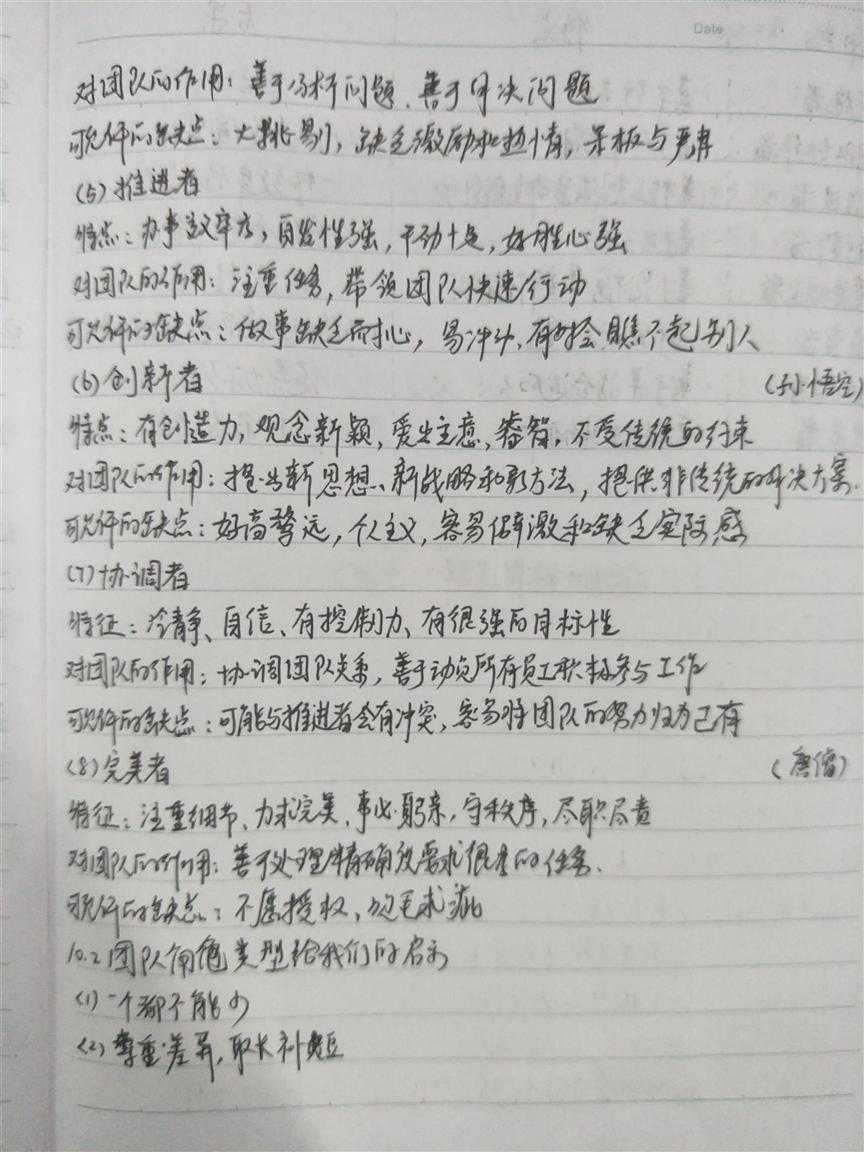 Date
对团队的作用：善于分析问题、善于解决问题
可允许的缺点：太挑剔，缺乏激励和热情，呆板与严肃
(5)推进者
特点：办事效率高，自发性强，干劲十足，好胜心强
对团队的作用：注重任务，带领团队快速行动
可允许的缺点：做事缺乏耐心，易冲动、有时会瞧不起别人
(6)创新者 (孙悟空)
特点：有创造力，观念新颖，爱出主意，睿智，不受传统的约束
对团队的作用：提出新思想、新战略和新方法，提供非传统的解决方案.
可允许的缺点：好高骛远，个人主义，容易偏激和缺乏实际感
(7)协调者
特征：冷静、自信、有控制力、有很强的目标性
对团队的作用：协调团队关系，善于动员所有员工积极参与工作
可允许的缺点：可能与推进者会有冲突，容易将团队的努力归为己有
(8)完美者 (唐僧)
特征：注重细节、力求完美、事必躬亲，守秩序，尽职尽责
对团队的作用：善于处理精确及要求很高的任务.
可允许的缺点：不愿授权，吹毛求疵
10.2团队角色类型给我们的启示
(1)一个都不能少
(2)尊重差异，取长补短